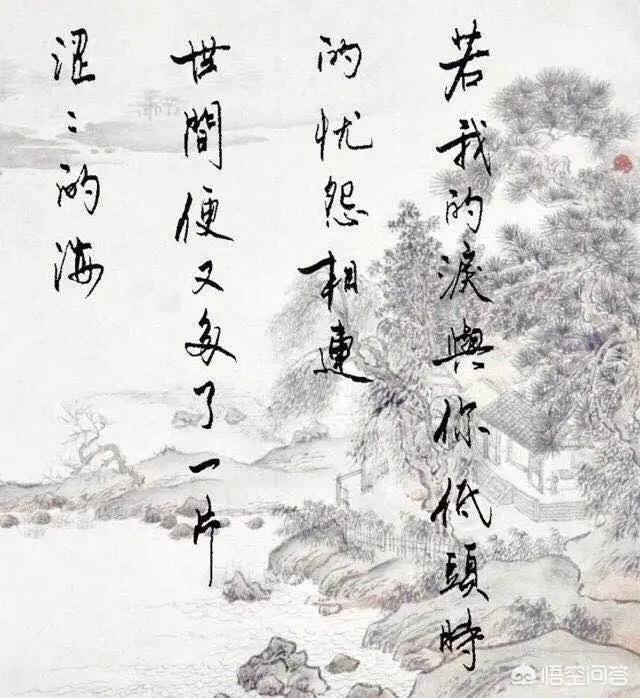 若我的淚與你低頭時
的忧怨相連
世間便又多了一片
涩々的海
悟空问答